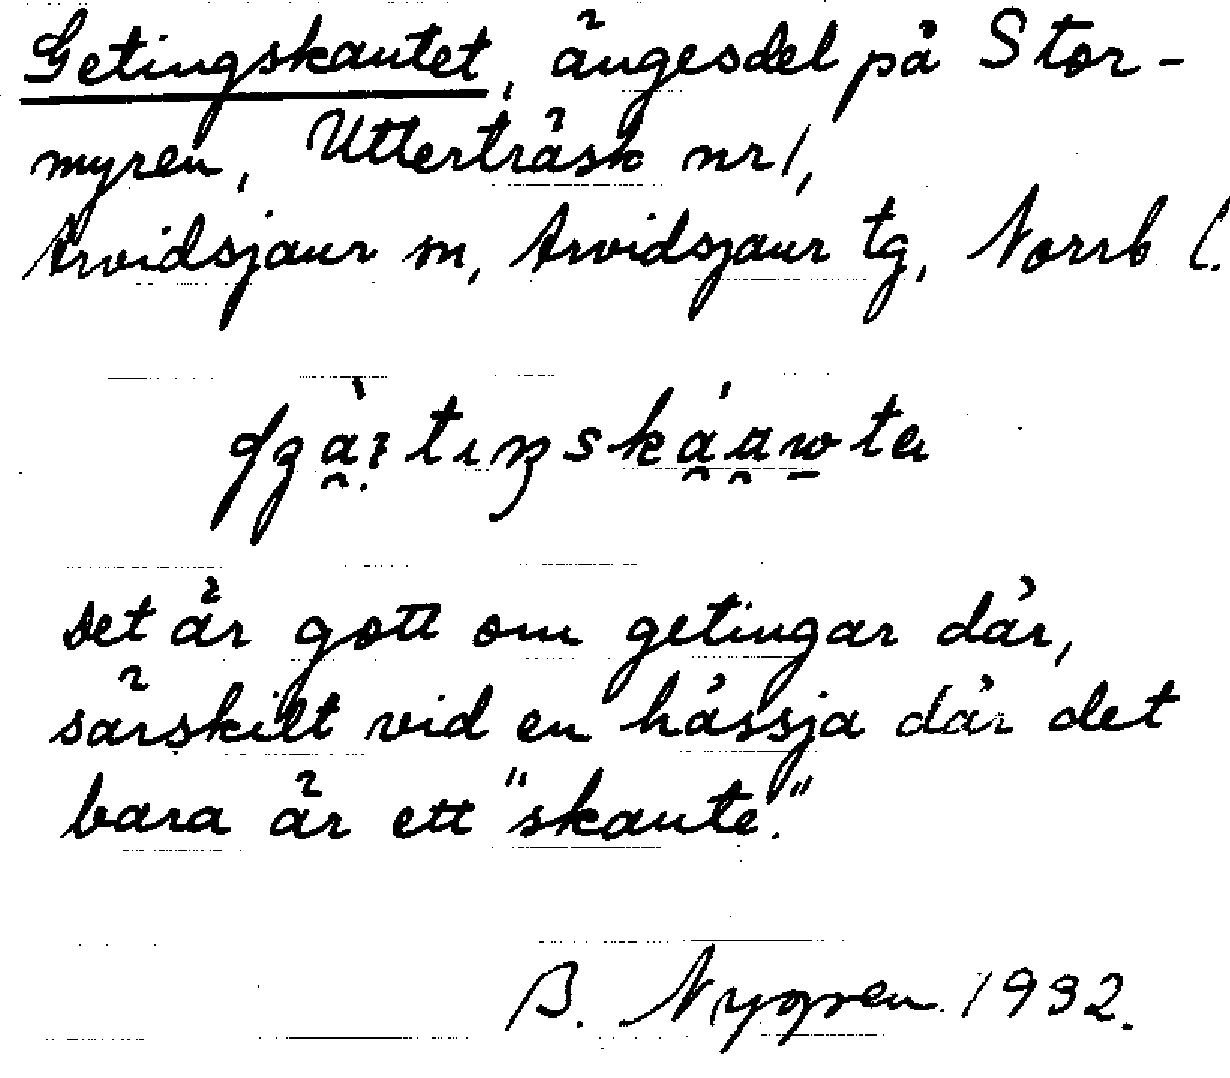 Getingskantet, ängesdel på Stor-
myren, Utterträsk nr 1,
Arvidsjaur sn, Arvidsjaur tg, Norrb l.
Det är gott om getingar där,
särskilt vid en hässja där det
bara är ett "skante."
B. Nygren 1932.